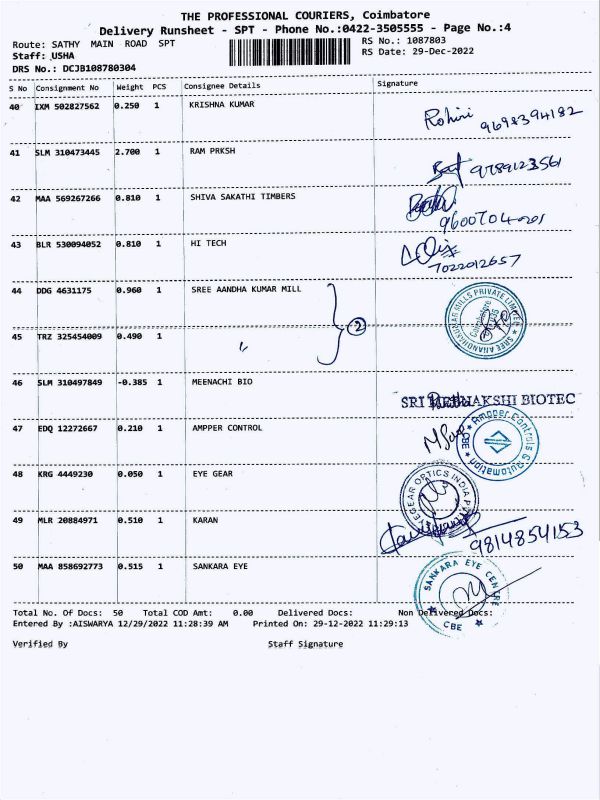 THE PROFESSIONAL COURIERS, Coimbatore
Delivery Runsheet - SPT - Phone No.:0422-3505555 - Page No.:4
Route: SATHY MAIN ROAD SPT
RS No.: 1087803
Staff: USHA
RS Date: 29-Dec-2022
DRS No.: DCJB108780304
S No Consignment No Weight PCS Consignee Details Signature
40 IXM 502827562 0.250 1 KRISHNA KUMAR Rohini 9698394182
41 SLM 310473445 2.700 1 RAM PRKSH 9789123561
42 MAA 569267266 0.810 1 SHIVA SAKATHI TIMBERS
43 BLR 530094052 0.810 1 HI TECH 7022012657
44 DDG 4631175 0.960 1 SREE AANDHA KUMAR MILL
2
45 TRZ 325454009 0.490 1 "
46 SLM 310497849 -0.385 1 MEENACHI BIO SRI MEENAKSHI BIOTEC
47 EDQ 12272667 0.210 1 AMPPER CONTROL Ampper Controls & Automation CBE
48 KRG 4449230 0.050 1 EYE GEAR EGEAR OPTICS INDIA
49 MLR 20884971 0.510 1 KARAN 9814854153
50 MAA 858692773 0.515 1 SANKARA EYE SANKARA EYE CENTRE CBE
Total No. Of Docs: 50 Total COD Amt: 0.00 Delivered Docs: Non Delivered Docs:
Entered By :AISWARYA 12/29/2022 11:28:39 AM Printed On: 29-12-2022 11:29:13
Verified By Staff Signature